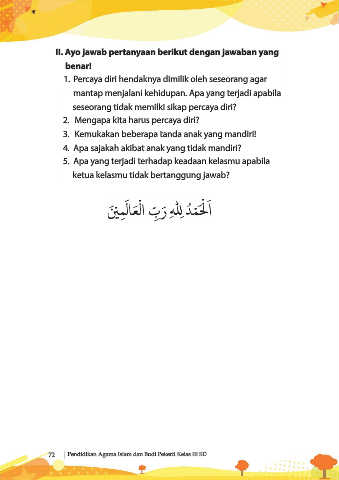 II. Ayo jawab pertanyaan berikut dengan jawaban yang
benar!
1. Percaya diri hendaknya dimilik oleh seseorang agar
mantap menjalani kehidupan. Apa yang terjadi apabila
seseorang tidak memiliki sikap percaya diri?
2. Mengapa kita harus percaya diri?
3. Kemukakan beberapa tanda anak yang mandiri!
4. Apa sajakah akibat anak yang tidak mandiri?
5. Apa yang terjadi terhadap keadaan kelasmu apabila
ketua kelasmu tidak bertanggung jawab?
اَلْحَمْدُ لِلّٰهِ رَبِّ الْعَالَمِيْنَ
72 Pendidikan Agama Islam dan Budi Pekerti Kelas III SD